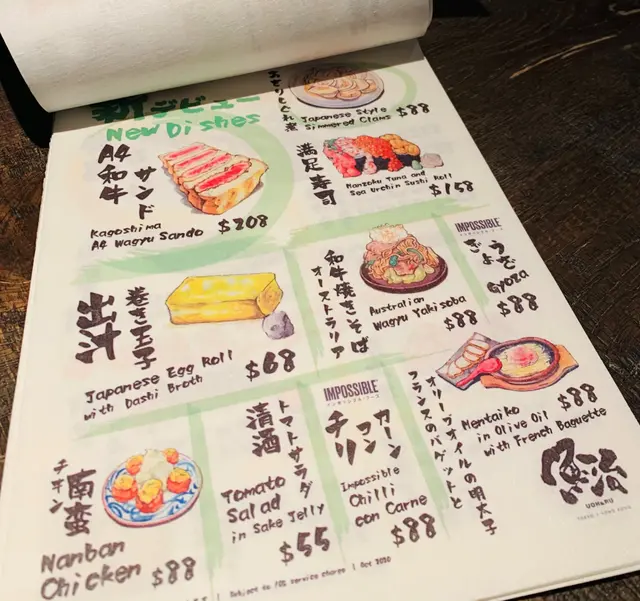 新デビュー
New Dishes
A4
和牛
サンド
Kagoshima
A4 Wagyu Sando
$208
Japanese Style
Simmered Clams
$88
満足寿司
Manzoku Tuna and
Sea Urchin Sushi Roll
$158
出汁
巻き玉子
Japanese Egg Roll
with Dashi Broth
$68
和牛焼きそば
オーストラリア
Australian
Wagyu Yakisoba
$88
IMPOSSIBLE
Gyoza
$88
チキン
南蛮
Nanban
Chicken
$88
清酒
トマトサラダ
Tomato
Salad
in Sake Jelly
$55
IMPOSSIBLE
チリ
コン
カーン
Impossible
Chilli
con Carne
$88
オリーブオイルの明太子
フランスのバゲットと
Mentaiko
in Olive Oil
with French Baguette
$88
魚治
UOHARU
Subject to 10% service charge | Oct 2020